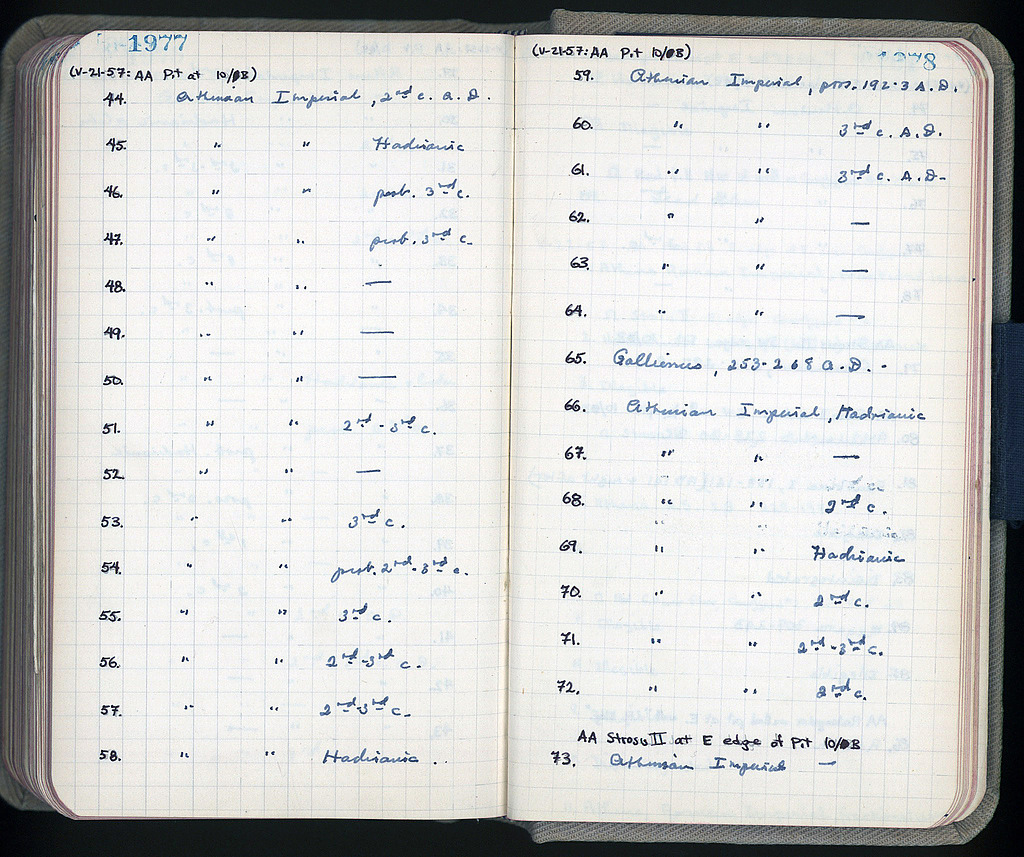 1977
(V-21-57: AA Pit at 10/ΘB)
44. Athenian Imperial, 2nd c. A.D.
45. " " Hadrianic
46. " " prob. 3rd c.
47. " " prob. 3rd c.
48. " " —
49. " " —
50. " " —
51. " " 2nd - 3rd c.
52. " " —
53. " " 3rd c.
54. " " prob. 2nd - 3rd c.
55. " " 3rd c.
56. " " 2nd - 3rd c.
57. " " 2nd - 3rd c.
58. " " Hadrianic
1978
(V-21-57: AA Pit 10/ΘB)
59. Athenian Imperial, pros. 192-3 A.D.
60. " " 3rd c. A.D.
61. " " 3rd c. A.D.
62. " " —
63. " " —
64. " " —
65. Gallienus, 253-268 A.D.
66. Athenian Imperial, Hadrianic
67. " " —
68. " " 2nd c.
69. " " Hadrianic
70. " " 2nd c.
71. " " 2nd - 3rd c.
72. " " 2nd c.
AA Strosis II at E edge of Pit 10/ΘB
73. Athenian Imperial —